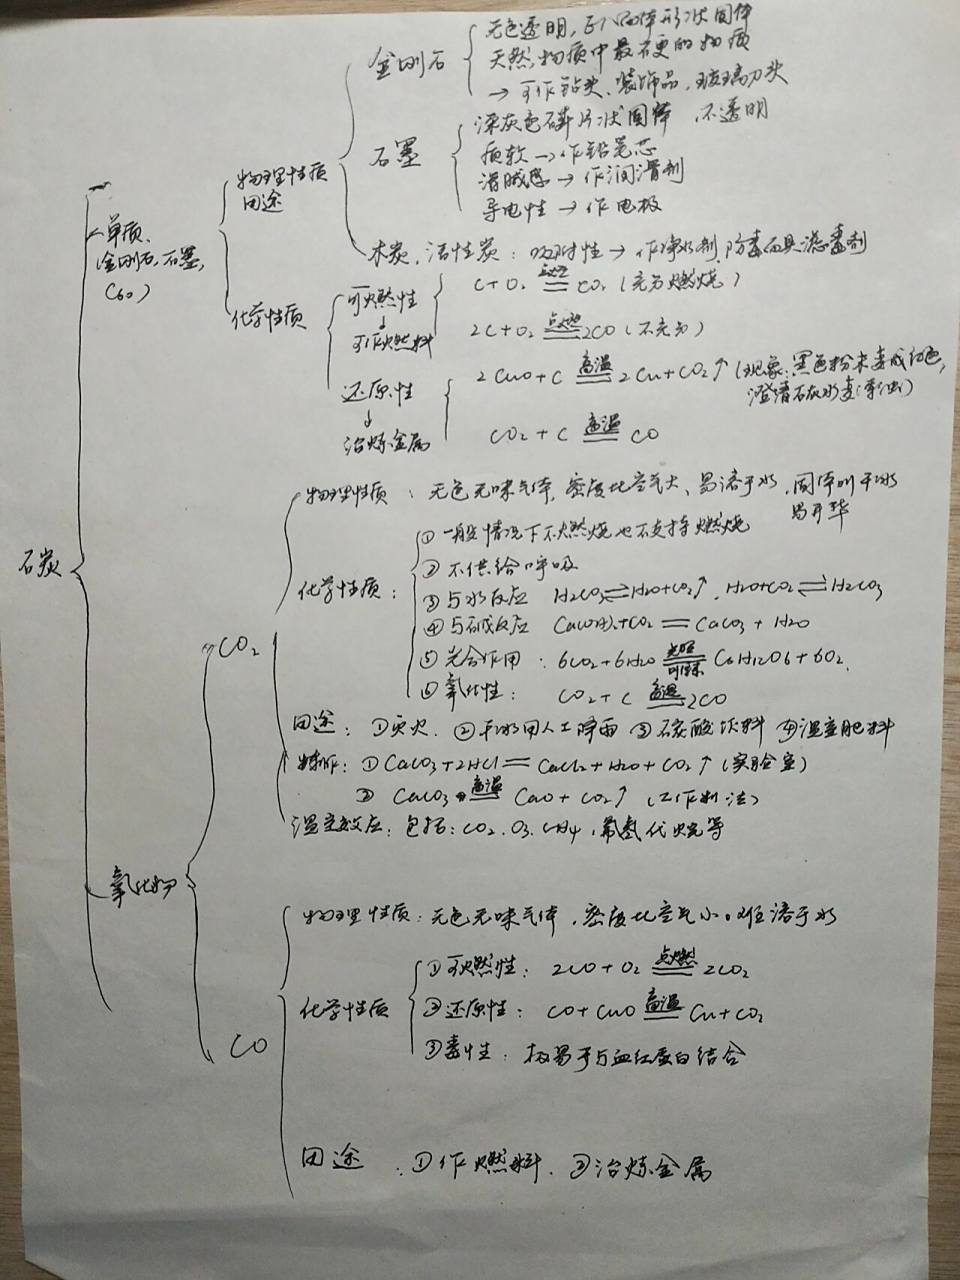 金刚石
无色透明，正八面体形状固体
天然物质中最硬的物质
→可作钻头、装饰品，玻璃刀头
石墨
深灰色鳞片状固体，不透明
质软→作铅笔芯
滑腻感→作润滑剂
导电性→作电极
物理性质
用途
木炭，活性炭：吸附性→作净水剂，防毒面具滤毒剂
单质
(金刚石，石墨，
C60)
化学性质
可燃性
↓
可作燃料
C+O2 点燃 CO2 (充分燃烧)
2C+O2 点燃 2CO (不充分)
还原性
↓
冶炼金属
2CuO+C 高温 2Cu+CO2↑ (现象：黑色粉末变成红色，
澄清石灰水变浑浊)
CO2+C 高温 CO
石炭
CO2
物理性质：无色无味气体，密度比空气大、易溶于水，固体叫干冰
易升华
化学性质：
①一般情况下不燃烧也不支持燃烧
②不供给呼吸
③与水反应 H2CO3⇌H2O+CO2↑，H2O+CO2⇌H2CO3
④与碱反应 Ca(OH)2+CO2=CaCO3+H2O
⑤光合作用：6CO2+6H2O 光照 叶绿素 C6H12O6+6O2
⑥氧化性：CO2+C 高温 2CO
用途：①灭火 ②干冰用人工降雨 ③碳酸饮料 ④温室肥料
制作：①CaCO3+2HCl=CaCl2+H2O+CO2↑(实验室)
② CaCO3 高温 CaO+CO2↑ (工作制法)
温室效应：包括：CO2、O3、CH4，氟氯代烷等
氧化物
CO
物理性质：无色无味气体，密度比空气小。难溶于水
化学性质
①可燃性：2CO+O2 点燃 2CO2
②还原性：CO+CuO 高温 Cu+CO2
③毒性：极易于与血红蛋白结合
用途：①作燃料. ②冶炼金属